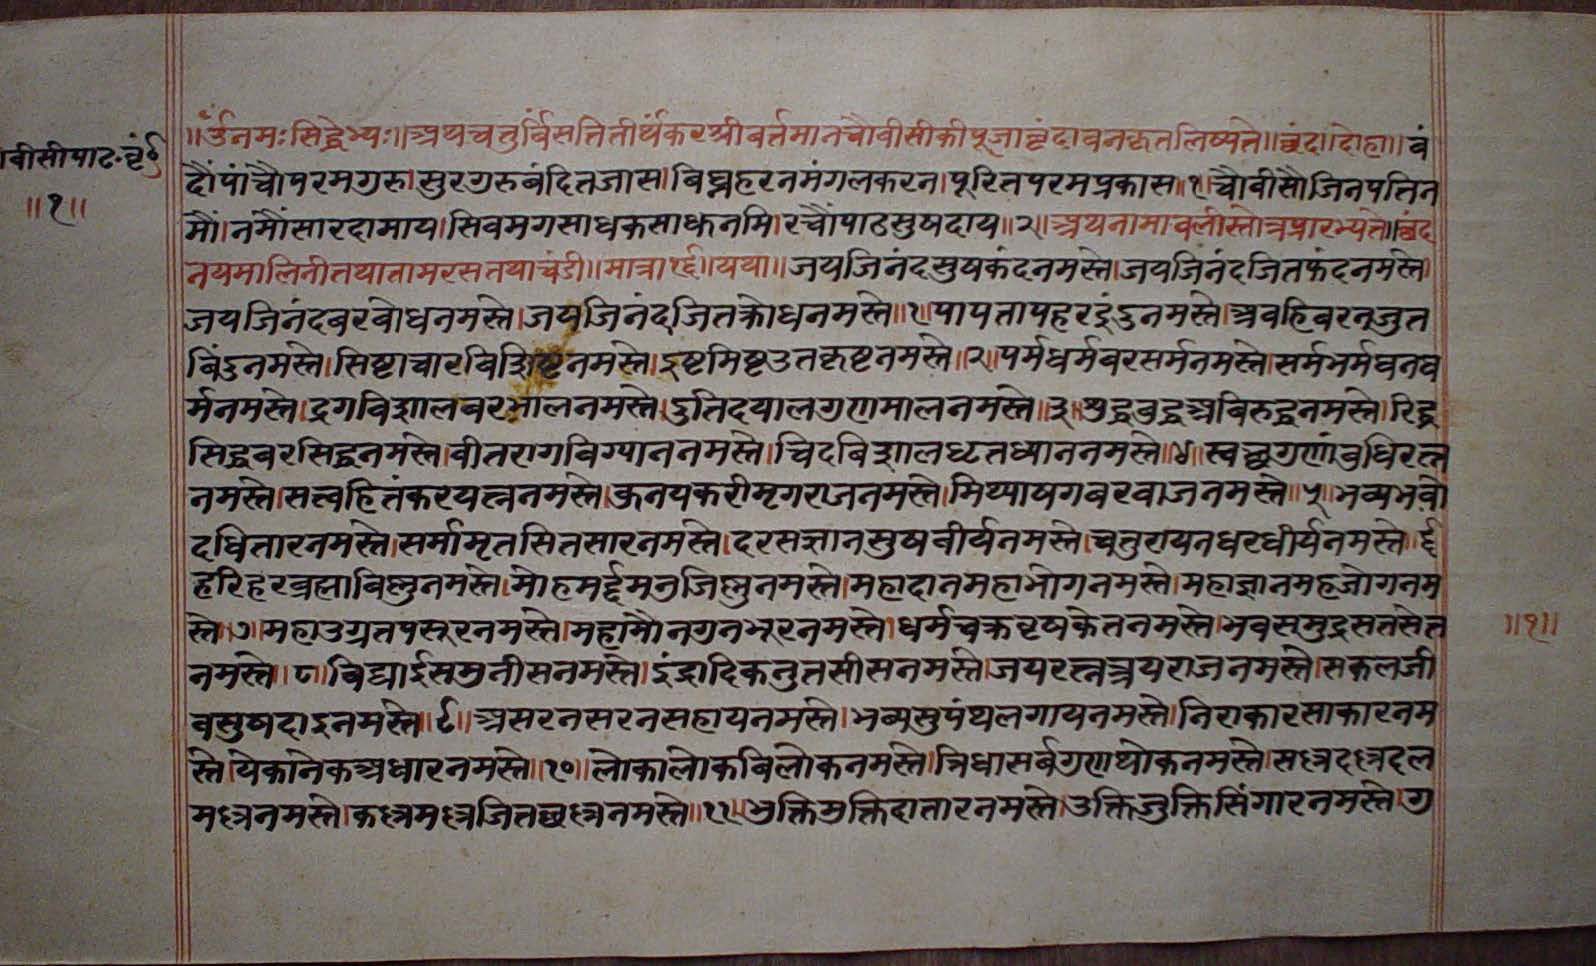 ॥ॐनमःसिद्धेभ्यः॥अथचतुर्विसतितीर्थंकरश्रीबर्तमानचौबीसीकीपूजाबृंदावनकृतलिष्यते॥छंद॥दोहा॥बं
बीसीपाठ॰बृं॰
॥१॥
दौंपांचौपरमगुरु।सुरगुरुबंदितजास।बिघ्नहरनमंगलकरन।पूरितपरमप्रकास॥१॥चौबीसौजिनपतिन
मौं।नंमौंसारदामाय।सिवमगसाधकसाधनमि।रचौंपाठसुषदाय॥२॥अथनामावलीस्तोत्रप्रारभ्यते॥छंद
नयमालिनीतथातामरसतथाचंडी॥मात्रा१६॥यथा॥जयजिनंदसुषकंदनमस्ते।जयजिनंदजितफंदनमस्ते।
जयजिनंदबरबोधनमस्ते।जयजिनंदजितक्रोधनमस्ते॥१॥पापतापहरइंदुनमस्ते।अबहिबरनजुत
बिंदुनमस्ते।सिष्टाचारबिशिष्टनमस्ते।इष्टमिष्टउतकृष्टनमस्ते॥२॥पर्मधर्मबरसर्मनमस्ते।सर्मभर्मघनघ
र्मनमस्ते।द्रगबिशालबरभालनमस्ते।दुतिदयालगुणमालनमस्ते॥३॥शुद्धबुद्धअबिरुद्धनमस्ते।रिद्धि
सिद्धबरसिद्धनमस्ते।बीतरागबिग्याननमस्ते।चिदबिशालधृतध्याननमस्ते॥४॥स्वछगुणांबुधिरत्न
नमस्ते।सत्वहितंकरयत्ननमस्ते।कुनयकरीमृगराजनमस्ते।मिथ्याषगबरबाजनमस्ते॥५॥भव्यभवो
दधितारनमस्ते।सर्मामृतसितसारनमस्ते।दरसज्ञानसुषबीर्यनमस्ते।चतुराननधरधीर्यनमस्ते॥६॥
हरिहरब्रह्माबिष्णुनमस्ते।मोहमर्द्दमनुजिष्णुनमस्ते।महादानमहाभोगनमस्ते।महाज्ञानमहजोगनम
स्ते॥७॥महाउग्रतपसूरनमस्ते।महामौनगुनभूरनमस्ते।धर्मचक्रबृषकेतनमस्ते।भबसमुद्रसतसेत
॥१॥
नमस्ते॥८॥बिद्याईसमुनीसनमस्ते।इंद्रादिकनुतसीसनमस्ते।जयरत्नत्रयराजनमस्ते।सकलजी
बसुषदाइनमस्ते॥९॥असरनसरनसहायनमस्ते।भब्यसुपंथलगायनमस्ते।निराकारसाकारनम
स्ते।येकानेकअधारनमस्ते॥१०॥लोकालोकबिलोकनमस्ते।त्रिधासर्बगुणथोकनमस्ते।सल्लदल्लदल
मल्लनमस्ते।कल्लमल्लजितछल्लनमस्ते॥११॥भुक्तिमुक्तिदातारनमस्ते।उक्तिजुक्तिसिंगारनमस्ते।गु